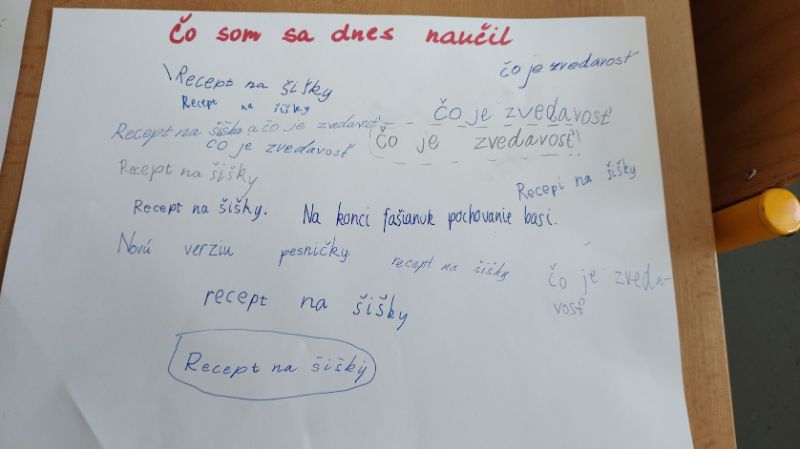 Čo som sa dnes naučil
čo je zvedavosť
Recept na šišky
Recept na šišky
čo je zvedavosť
Recept na šišky a čo je zvedavosť
čo je zvedavosť!
čo je zvedavosť
Recept na šišky
Recepi na šišky
Recept na šišky. Na konci fašianuk pochovanie basi.
Novú verziu pesničky
recept na šišky
čo je zveda-
vosť
recept na šišky
Recept na šišky